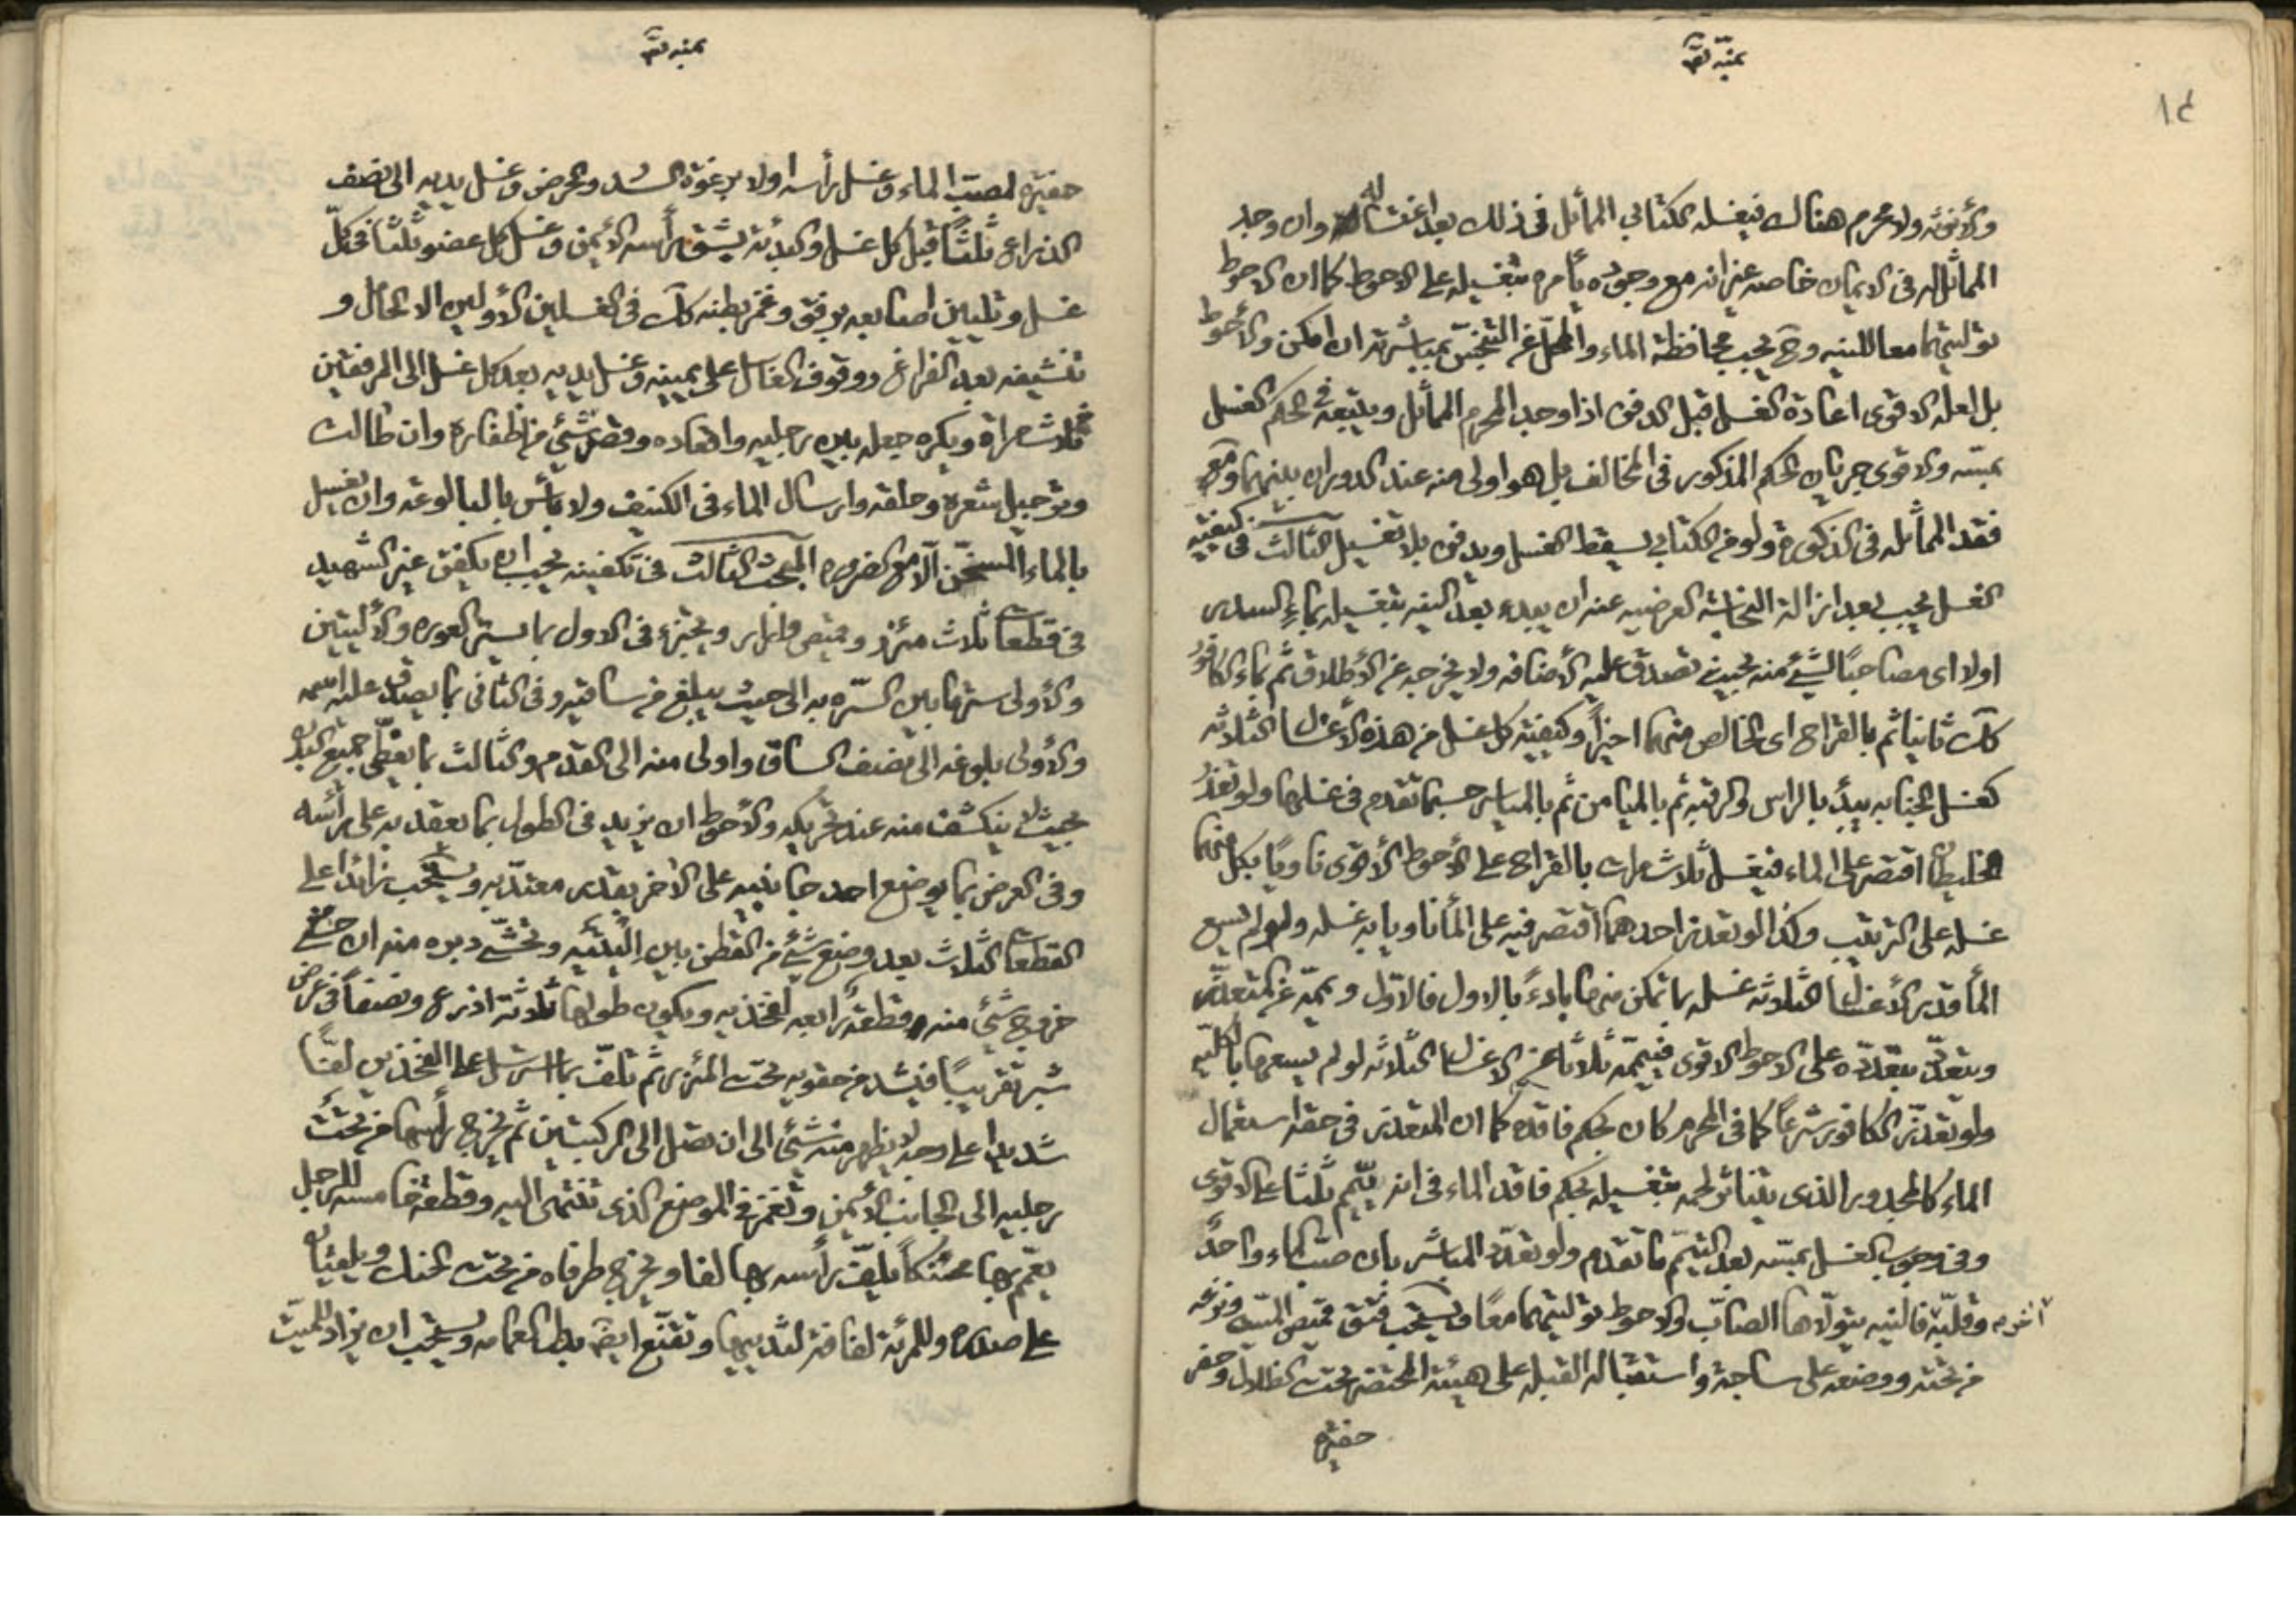 ١٤
والانوثة ولا محرم هناك فيغسله الكتابي المماثل في ذلك بعد اغتساله وان وجد
المماثل له في الايمان خاصه غير انه مع وجوده يأمره بتغسيله على الاحوط كما ان الاحوط
توليتهما معا للنيه وح يجب محافظة الماء والمحل عن التنجّس بمباشرته ان امكن والأحوط
بل لعله الاقوى اعادة الغسل قبل الدفن اذا وجد المحرم المماثل ويتبعه في الحكم الغسل
بمسّه والاقوى جريان الحكم المذكور في المخالف بل هو اولى منه عند الدوران بينهما ومع
فقد المماثله في الذكورة ولو من الكتابي يسقط الغسل ويدفن بلا تغسيل الثالث في كيفيّته
الغسل يجب بعد ازالة النجاسة العرضيه عنه ان يبدء بعد النيه بتغسيله بماءِ السدر
اولا اى مصاحبًا لشئ منه بحيث تصدق عليه الأضافه ولا يخرجه عن الأطلاق ثم بماء الكافور
كك ثانيا ثم بالقراح اى الخالص منهما اخيرًا وكيفيّته كل غسل من هذه الأغسال الثلاثه
كغسل الجنابه يبدُأ بالراس والرقبه ثم بالميامن ثم بالمياسر حسبما تقدم في غسلها ولو تعذر
الخليطان اقتصر على الماء فيغسل ثلاث مرات بالقراح على الأحوط الأقوى ناويًا بكل منهما
غسله على الترتيب وكذا لو تعذر احدهما اقتصر فيه على المأ ناويا به غسله ولو لم يسع
المأ قدر الأغسال الثلاثه غسله بما تمكن منها بادءً بالاول فالاوّل ويممّه عن المتعذّر
ويتعدّد بتعدّده على الاحوط الاقوى فييممّه ثلاثا عن الاغسال الثلاثه لو لم يسعها بالكليّه
ولو تعذّر الكافور شرعًا كما في المحرم كان بحكم فاقده كما ان المتعذر في حقه استعمال
الماء كالمجدور الذى يتناثر لحمه بتغسيله بحكم فاقد الماء في انه ييمّم ثلثا على الاقوى
وفي وجوب الغسل بمسّه بعد التيمّم ما تقدم ولو تعدّد المباشر بان صبّ الماء واحدٌ
آخر وقلبّه فالنيه يتولّاها الصابّ والاحوط توليتهما معًا ويستحب فتق قميص الميّت ونزعه
من تحته ووضعه على ساجة واستقباله القبله على هيئته المحتضر تحت الظلال وحفر
حفيرة
حفيرة لصبّ الماء وغسل رأسه اولا برغوة السّدر والحرض وغسل يديه الى نصف
الذراع ثلثًا قبل كل غسل والبدئة بشق رأسه الأيمن وغسل كل عضو ثلثا في كلّ
غسل وتليين اصابعه برفق وغمز بطنه كك في الغسلين الأولين الا الحامل و
تنشيفه بعد الفراغ ووقوف الغاسل على يمينه وغسل يديه بعد كل غسل الى المرفقين
ثلاث مراة ويكره جعله بين رجليه واقعاده وقصّ شئي من اظفاره وان طالت
وترجيل شعره وحلقه وارسال الماء في الكنيف ولا بأس بالبالوعة وان يغسل
بالماء المسخّن الّا مع الضروره المبحث الثالث في تكفينه يجب ان يكفّن غير الشهيد
في قطعات ثلاث مئزر وقميص وازار ويجتزء في الاول بما يستر العوره والأليتين
والأولى ستر ما بين السّره به الى حيث يبلغ من ساقيه وفي الثاني بما يصدق عليه اسمه
والأولى بلوغه الى نصف الساق واولى منه الى القدم والثالث بما يغطّى جميع البدن
بحيث لا ينكشف منه عند تحريكه والأحوط ان يزيد في الطول بما يعقد به على رأسه
وفي العرض بما يوضع احد جانبيه على الاخر بقدر معتدّ به ويستحب زائدا على
القطعات الثلاث بعد وضع شئ من القطن بين اليتيه وتحشّى دبره منه ان خشى
خروج شئ منه وقطعة رابعه لفخذيه ويكون طولها ثلاثة اذرع ونصفًا في عرض
شبر تقريبًا فيشد من حقويه تحت المئزر ثم تلفّ بما استرسل على الفخذين لفًّا
شديدا على وجه لا يظهر منه شئ الى ان تصل الى الركبتين ثم يخرج رأسها من تحت
رجليه الى الجانب الأيمن وتغمز في الموضع الذي تنتهى اليه وقطعة خامسه للرجل
يعمّم بها محنّكًا يلفّ رأسه بها لفا ويخرج طرفاه من تحت الحنك ويلقيان
على صدره وللمرئة لفافة لثدييها وتقنّع ايضًا بدل العمامه ويستحب ان يزاد للميّت